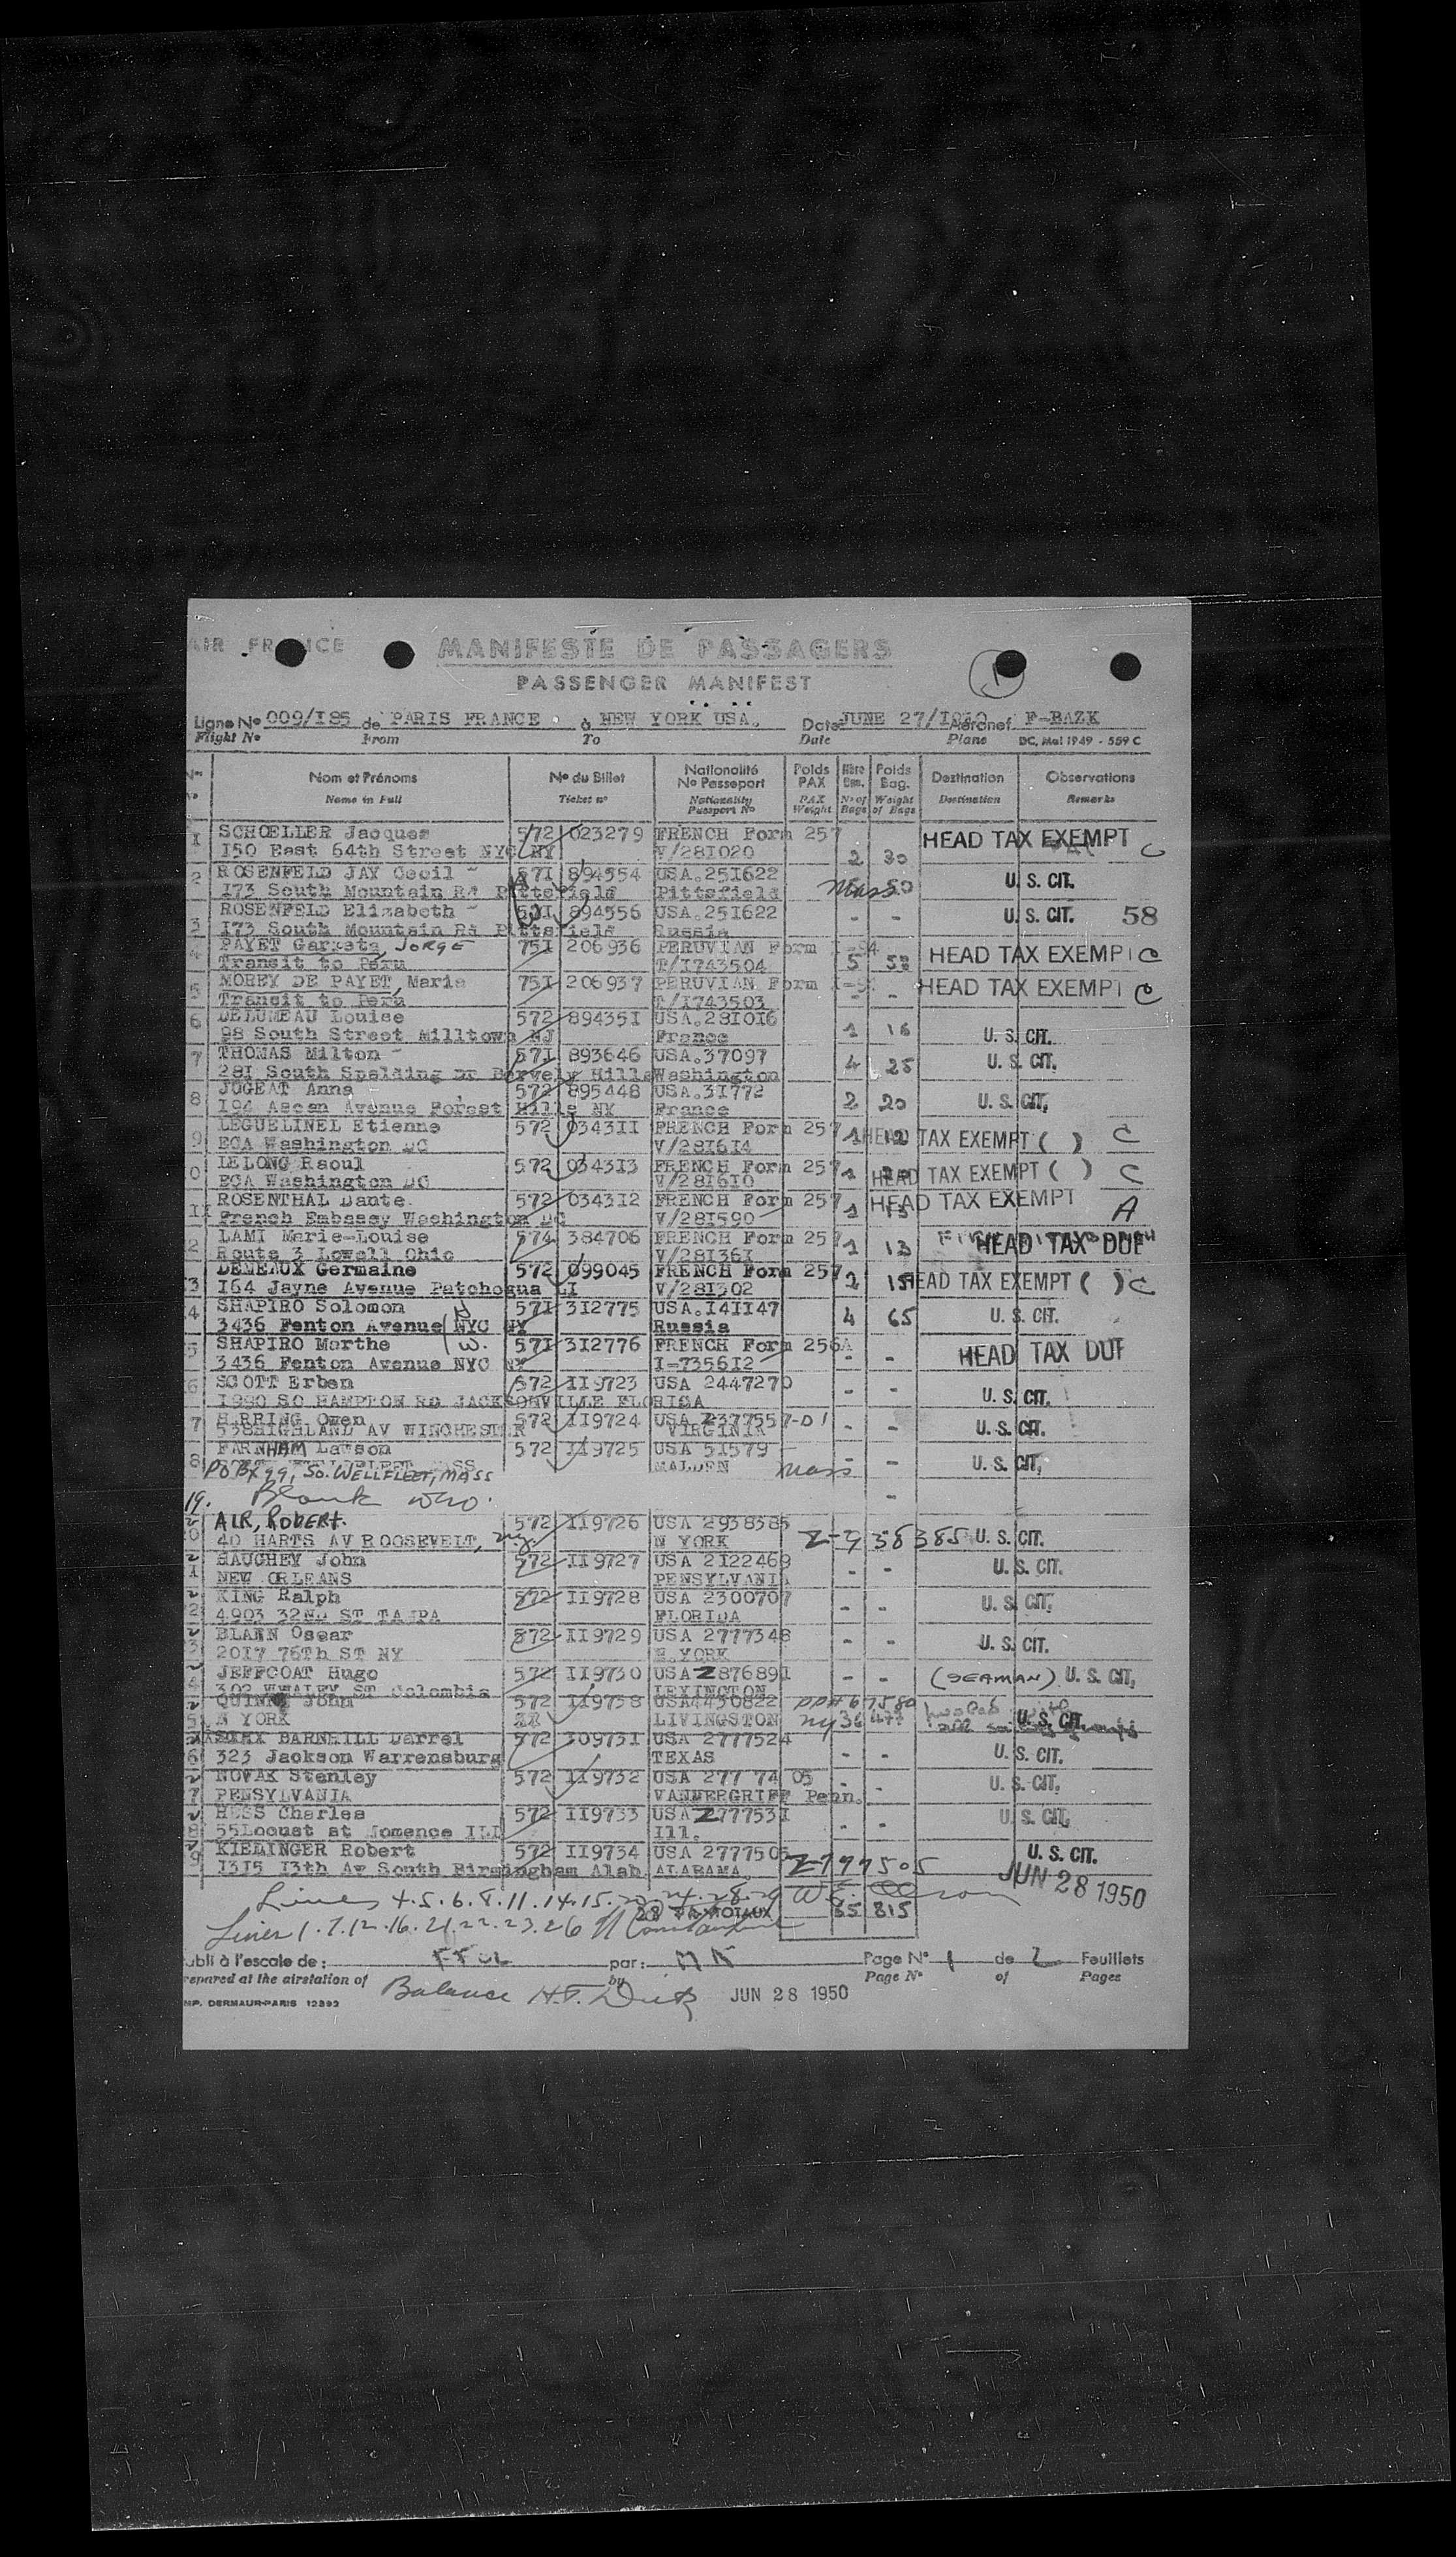 AIR FRANCE MANIFESTE DE PASSAGERS 1
PASSENGER MANIFEST
Ligne No 009/I85 de PARIS FRANCE à NEW YORK USA. Date JUNE 27/ Aéronef F-BAZK
Flight No From To Date Plane DC. Mai 1949 - 559 C
Nom et Prénoms No du Billet Nationalité No Passeport Poids PAX Nbre Poids Bag. Destination Observations
Name in Full Ticket no Nationality Passport No PAX Weight No of Bags Weight of Bags Destination Remarks
I SCHOELLER Jacques 572 023279 FRENCH Form 257 HEAD TAX EXEMPT C
I50 East 64th Street NYC NY V/28I020 2 30
2 ROSENFELD JAY Cecil 57I 894554 USA.25I622 U. S. CIT.
I73 South Mountain Rd Pittsfield Pittsfield Mass 50
ROSENFELD Elizabeth 57I 894556 USA.25I622 - - U. S. CIT. 58
3 I73 South Mountain Rd Pittsfield Russia
4 PAYET Garreta, JORGE 75I 206936 PERUVIAN Form I-94 HEAD TAX EXEMPT C
Transit to Peru T/I743504 5 58
5 MOREY DE PAYET, Maria 75I 206937 PERUVIAN Form I-94 HEAD TAX EXEMPT C
Transit to Peru T/I743503 - -
6 DELUMEAU Louise 572 89435I USA.28I0I6 1 16
98 South Street Milltown NJ France U. S. CIT.
7 THOMAS Milton 57I 893646 USA.37097 4 25 U. S. CIT.
28I South Spalding Dr Bervely Hills Washington
8 JUGEAT Anna 572 895448 USA.3I772 2 20 U. S. CIT.
I94 Ascan Avenue Forest Hills NY France
9 LEGUELINEL Etienne 572 0343II FRENCH Form 257 1 HEAD TAX EXEMPT ( ) C
ECA Washington DC V/28I6I4
0 LELONG Raoul 572 0343I3 FRENCH Form 257 1 HEAD TAX EXEMPT ( ) C
ECA Washington DC V/28I6I0
II ROSENTHAL Dante 572 0343I2 FRENCH Form 257 1 15 HEAD TAX EXEMPT A
French Embassy Washington DC V/28I590
2 LAMI Marie-Louise 574 384706 FRENCH Form 257 1 13 HEAD TAX DUE
Route 3 Lowell Ohio V/28I36I
3 DEMEAUX Germaine 572 099045 FRENCH Form 257 2 15 HEAD TAX EXEMPT ( ) C
I64 Jayne Avenue Patchogua LI V/28I302
4 SHAPIRO Solomon H 57I 3I2775 USA.I4II47 4 65 U. S. CIT.
3436 Fenton Avenue NYC NY Russia
5 SHAPIRO Marthe W. 57I 3I2776 FRENCH Form 256A - - HEAD TAX DUE
3436 Fenton Avenue NYC NY I-7356I2
6 SCOTT Erben 572 II9723 USA 2447270 - - U. S. CIT.
I990 SO HAMPTON RD JACKSONVILLE FLORIDA
7 HARRING Owen 572 II9724 USA 2377557-D1 - - U. S. CIT.
538HIGHLAND AV WINCHESTER VIRGINIA
8 FARNHAM Lawson 572 II9725 USA 5I579 - - U. S. CIT.
PO BX 99, SO. WELLFLEET, MASS MALDEN Mass
19. Blank WHO. -
20 ALR, ROBERT. 572 II9726 USA 2938385 Z-938385 U. S. CIT.
40 HARTS AV ROOSEVELT, N.Y. N YORK
21 GAUGHEY John 572 II9727 USA 2I22469 - - U. S. CIT.
NEW ORLEANS PENSYLVANIA
22 KING Ralph 572 II9728 USA 2300707 - - U. S. CIT.
4903 32ND ST TAMPA FLORIDA
23 BLANN Oscar 572 II9729 USA 2777348 - - U. S. CIT.
20I7 76Th ST NY N.YORK
24 JEFFCOAT Hugo 572 II9730 USA Z87689I - - (SEAMAN) U. S. CIT.
302 WHALEY ST Colombia LEXINGTON
25 QUINN John 572 II9738 USA4430822 U. S. CIT.
N YORK LIVINGSTON
26 BARNHILL Darrel 572 I0973I USA 2777524 - - U. S. CIT.
323 Jackson Warrensburg TEXAS
27 NOVAK Stenley 572 II9732 USA 277 74 05 - - U. S. CIT.
PENSYLVANIA VANNERGRIFF Penn.
28 HESS Charles 572 II9733 USA Z77753I - - U. S. CIT.
55Locust at Momence ILL Ill.
29 KIEDINGER Robert 572 II9734 USA 2777505 U. S. CIT.
I3I5 I3th Av South Birmingham Alab. ALABAMA. Z777505 JUN 28 1950
Lines 4.5.6.8.11.14.15.20.24.28.29
28 PAX TOTAUX 35 815
Lines 1.7.12.16.21.22.23.26
Etabli à l'escale de: par: Page No 1 de 2 Feuillets
Prepared at the airstation of by Page No of Pages
IMP. DERMAUR-PARIS 12392 Balance H.F. JUN 28 1950